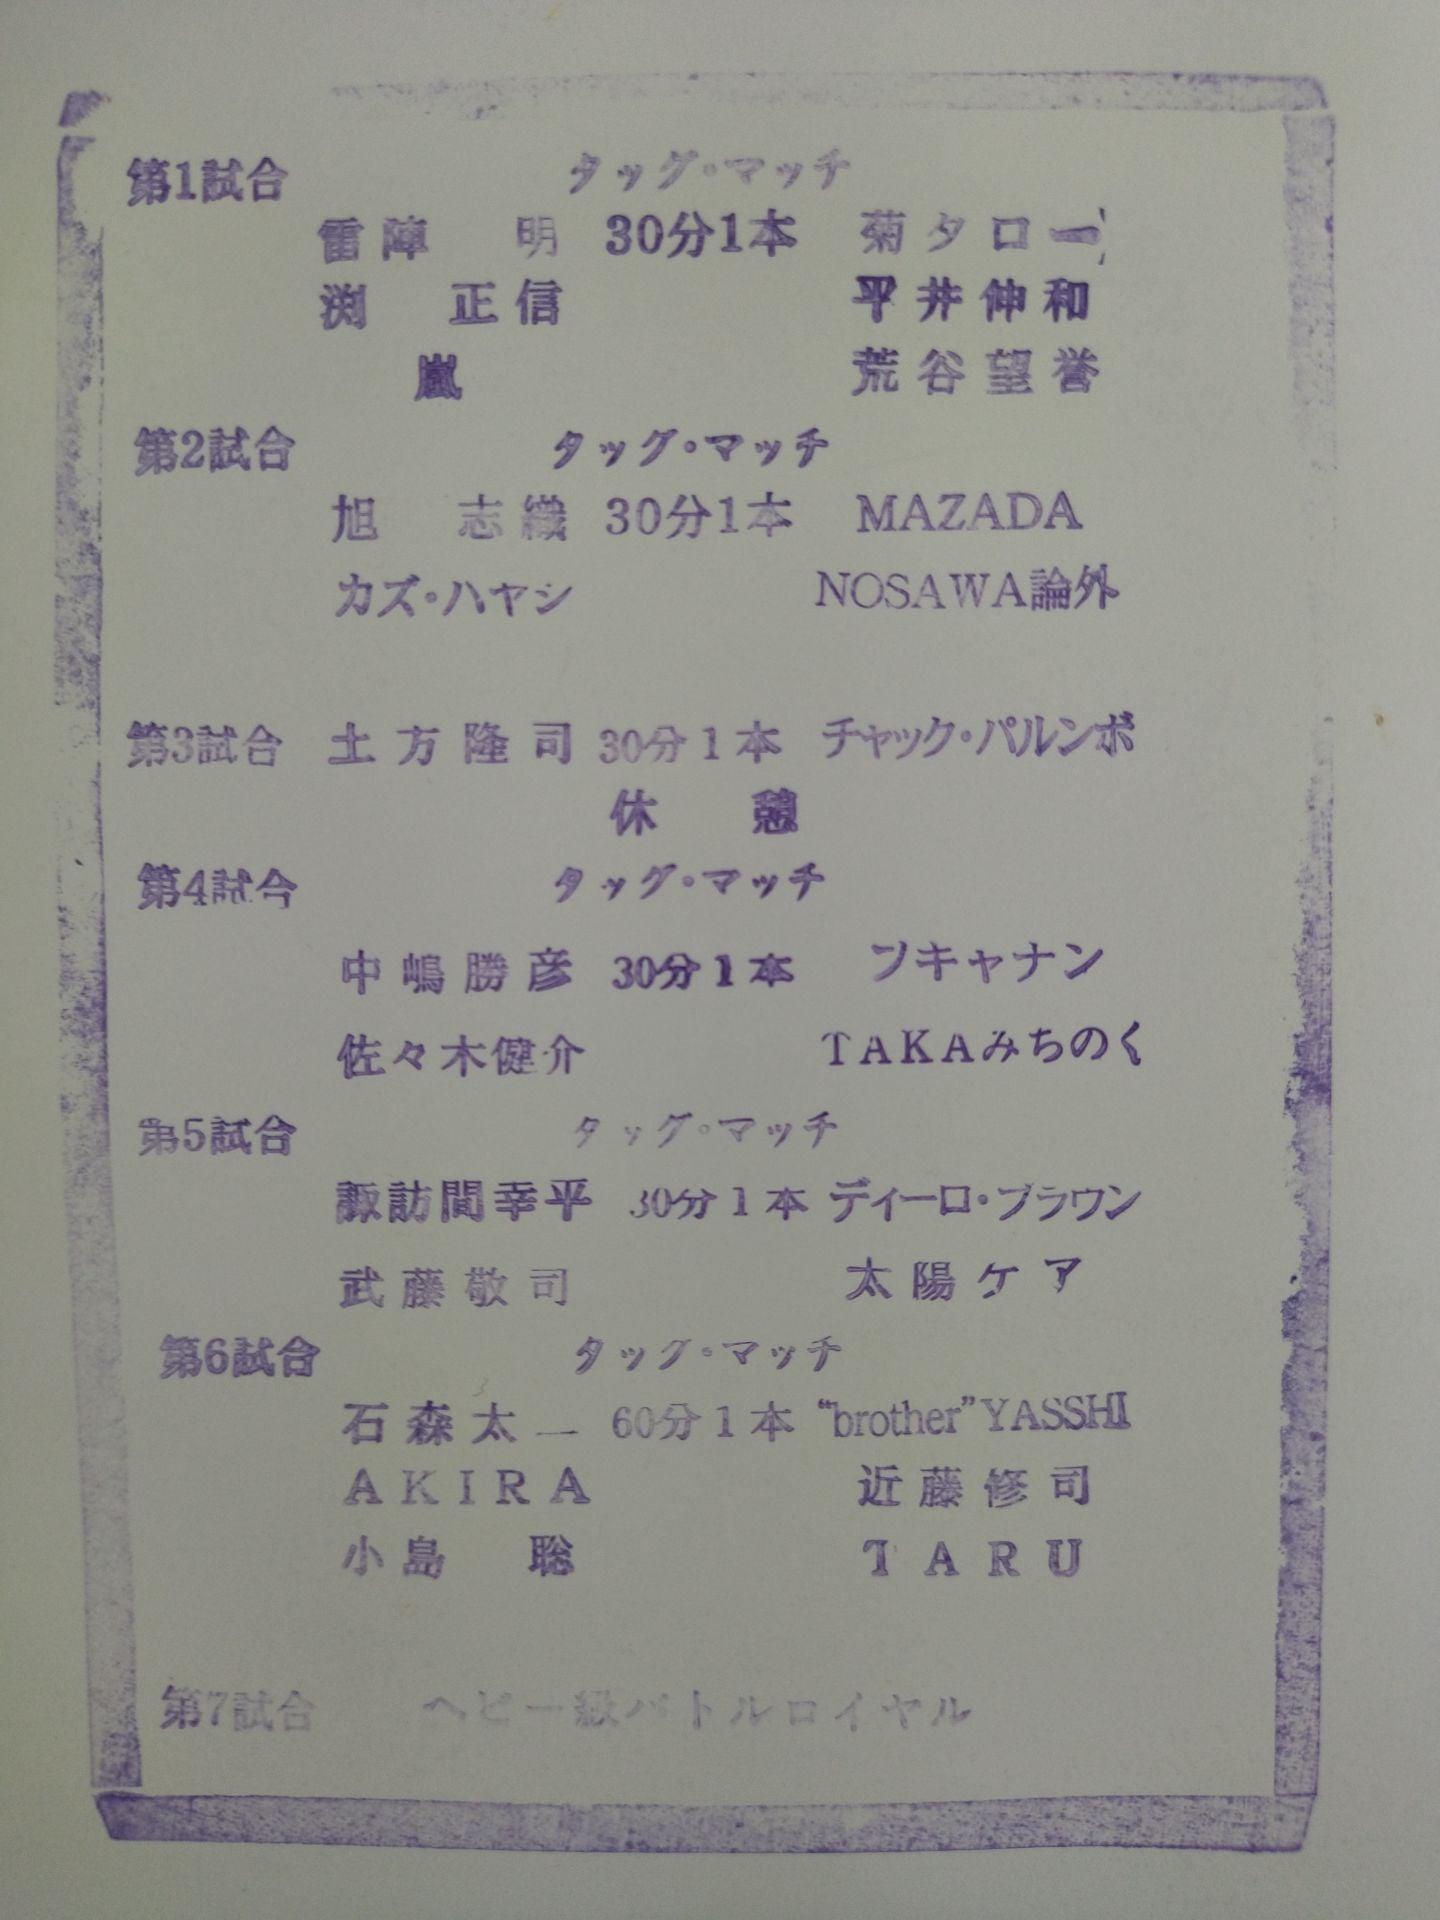 第1試合 タッグ・マッチ
雷陣 明 30分1本 菊タロー
渕 正信 平井伸和
嵐 荒谷望誉
第2試合 タッグ・マッチ
旭 志織 30分1本 MAZADA
カズ・ハヤシ NOSAWA論外
第3試合 土方隆司 30分1本 チャック・パルンボ
休 憩
第4試合 タッグ・マッチ
中嶋勝彦 30分1本 ブキャナン
佐々木健介 TAKAみちのく
第5試合 タッグ・マッチ
諏訪間幸平 30分1本 ディーロ・ブラウン
武藤敬司 太陽ケア
第6試合 タッグ・マッチ
石森太二 60分1本 “brother”YASSHI
AKIRA 近藤修司
小島 聡 TARU
第7試合 ヘビー級バトルロイヤル